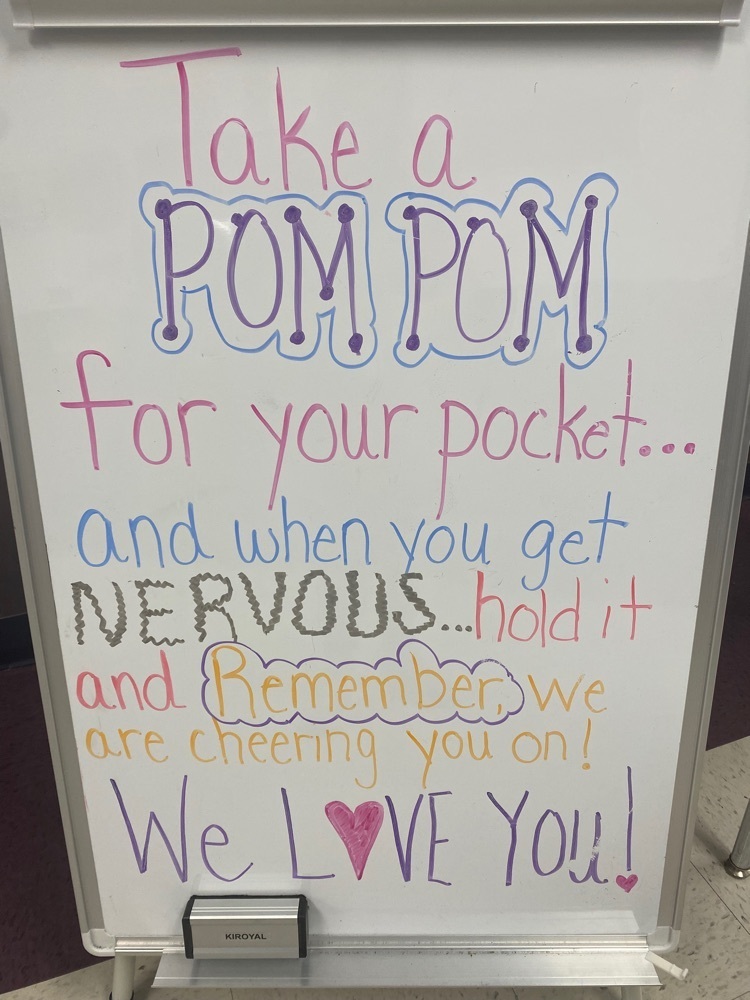 Take a
POM POM
for your pocket...
and when you get
NERVOUS...hold it
and Remember, we
are cheering you on!
We L♥VE YOu!
KIROYAL